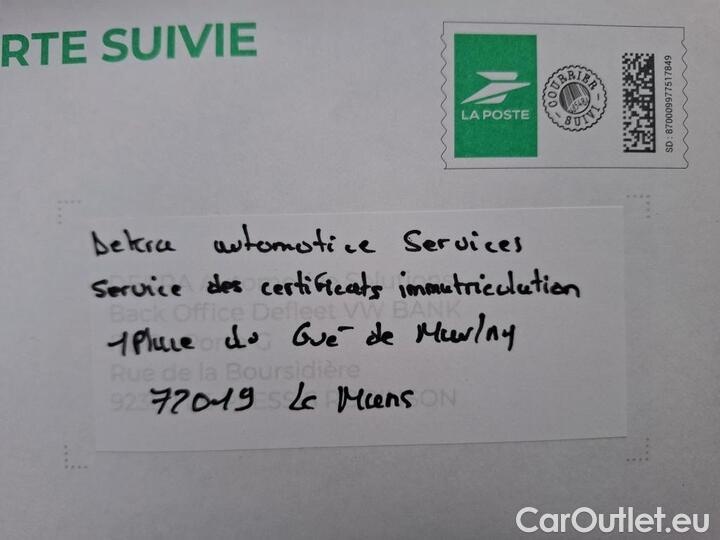 RTE SUIVIE
LA POSTE
COURRIER SUIVI
SD : 8700099977517849
Dekra automotice Services
Service des certificats immatriculation
1 Place du Gué de Maulny
72019 Le Mans
DEKRA Automotive Solutions
Back Office Defleet VW BANK
Rue de la Boursidière
CarOutlet.eu